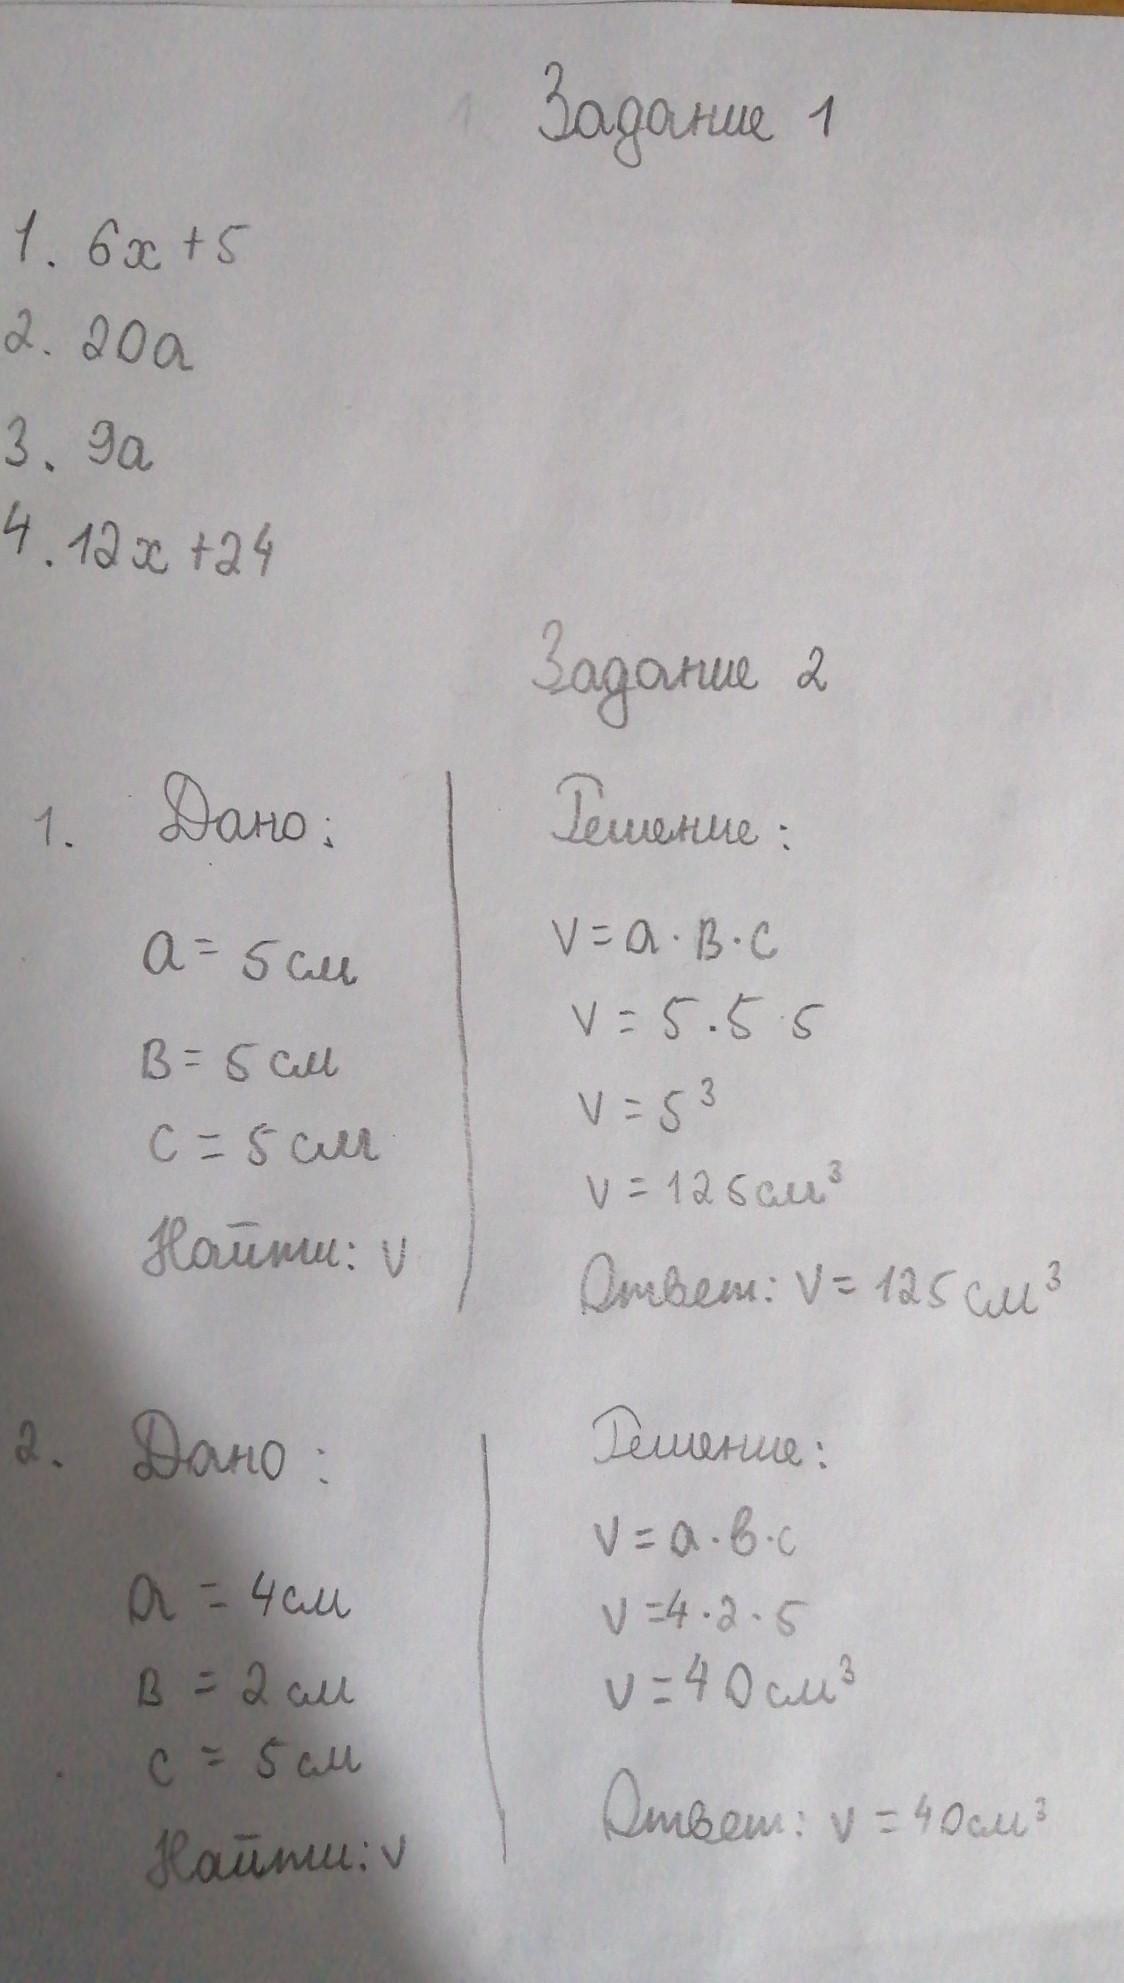 Задание 1
1. 6x + 5
2. 20a
3. 9a
4. 12x + 24
Задание 2
1. Дано:
a = 5 см
B = 5 см
C = 5 см
Найти: V
Решение:
V = a · B · C
V = 5 · 5 · 5
V = 5³
V = 125 см³
Ответ: V = 125 см³
2. Дано:
a = 4 см
B = 2 см
C = 5 см
Найти: V
Решение:
V = a · в · c
V = 4 · 2 · 5
V = 40 см³
Ответ: V = 40 см³